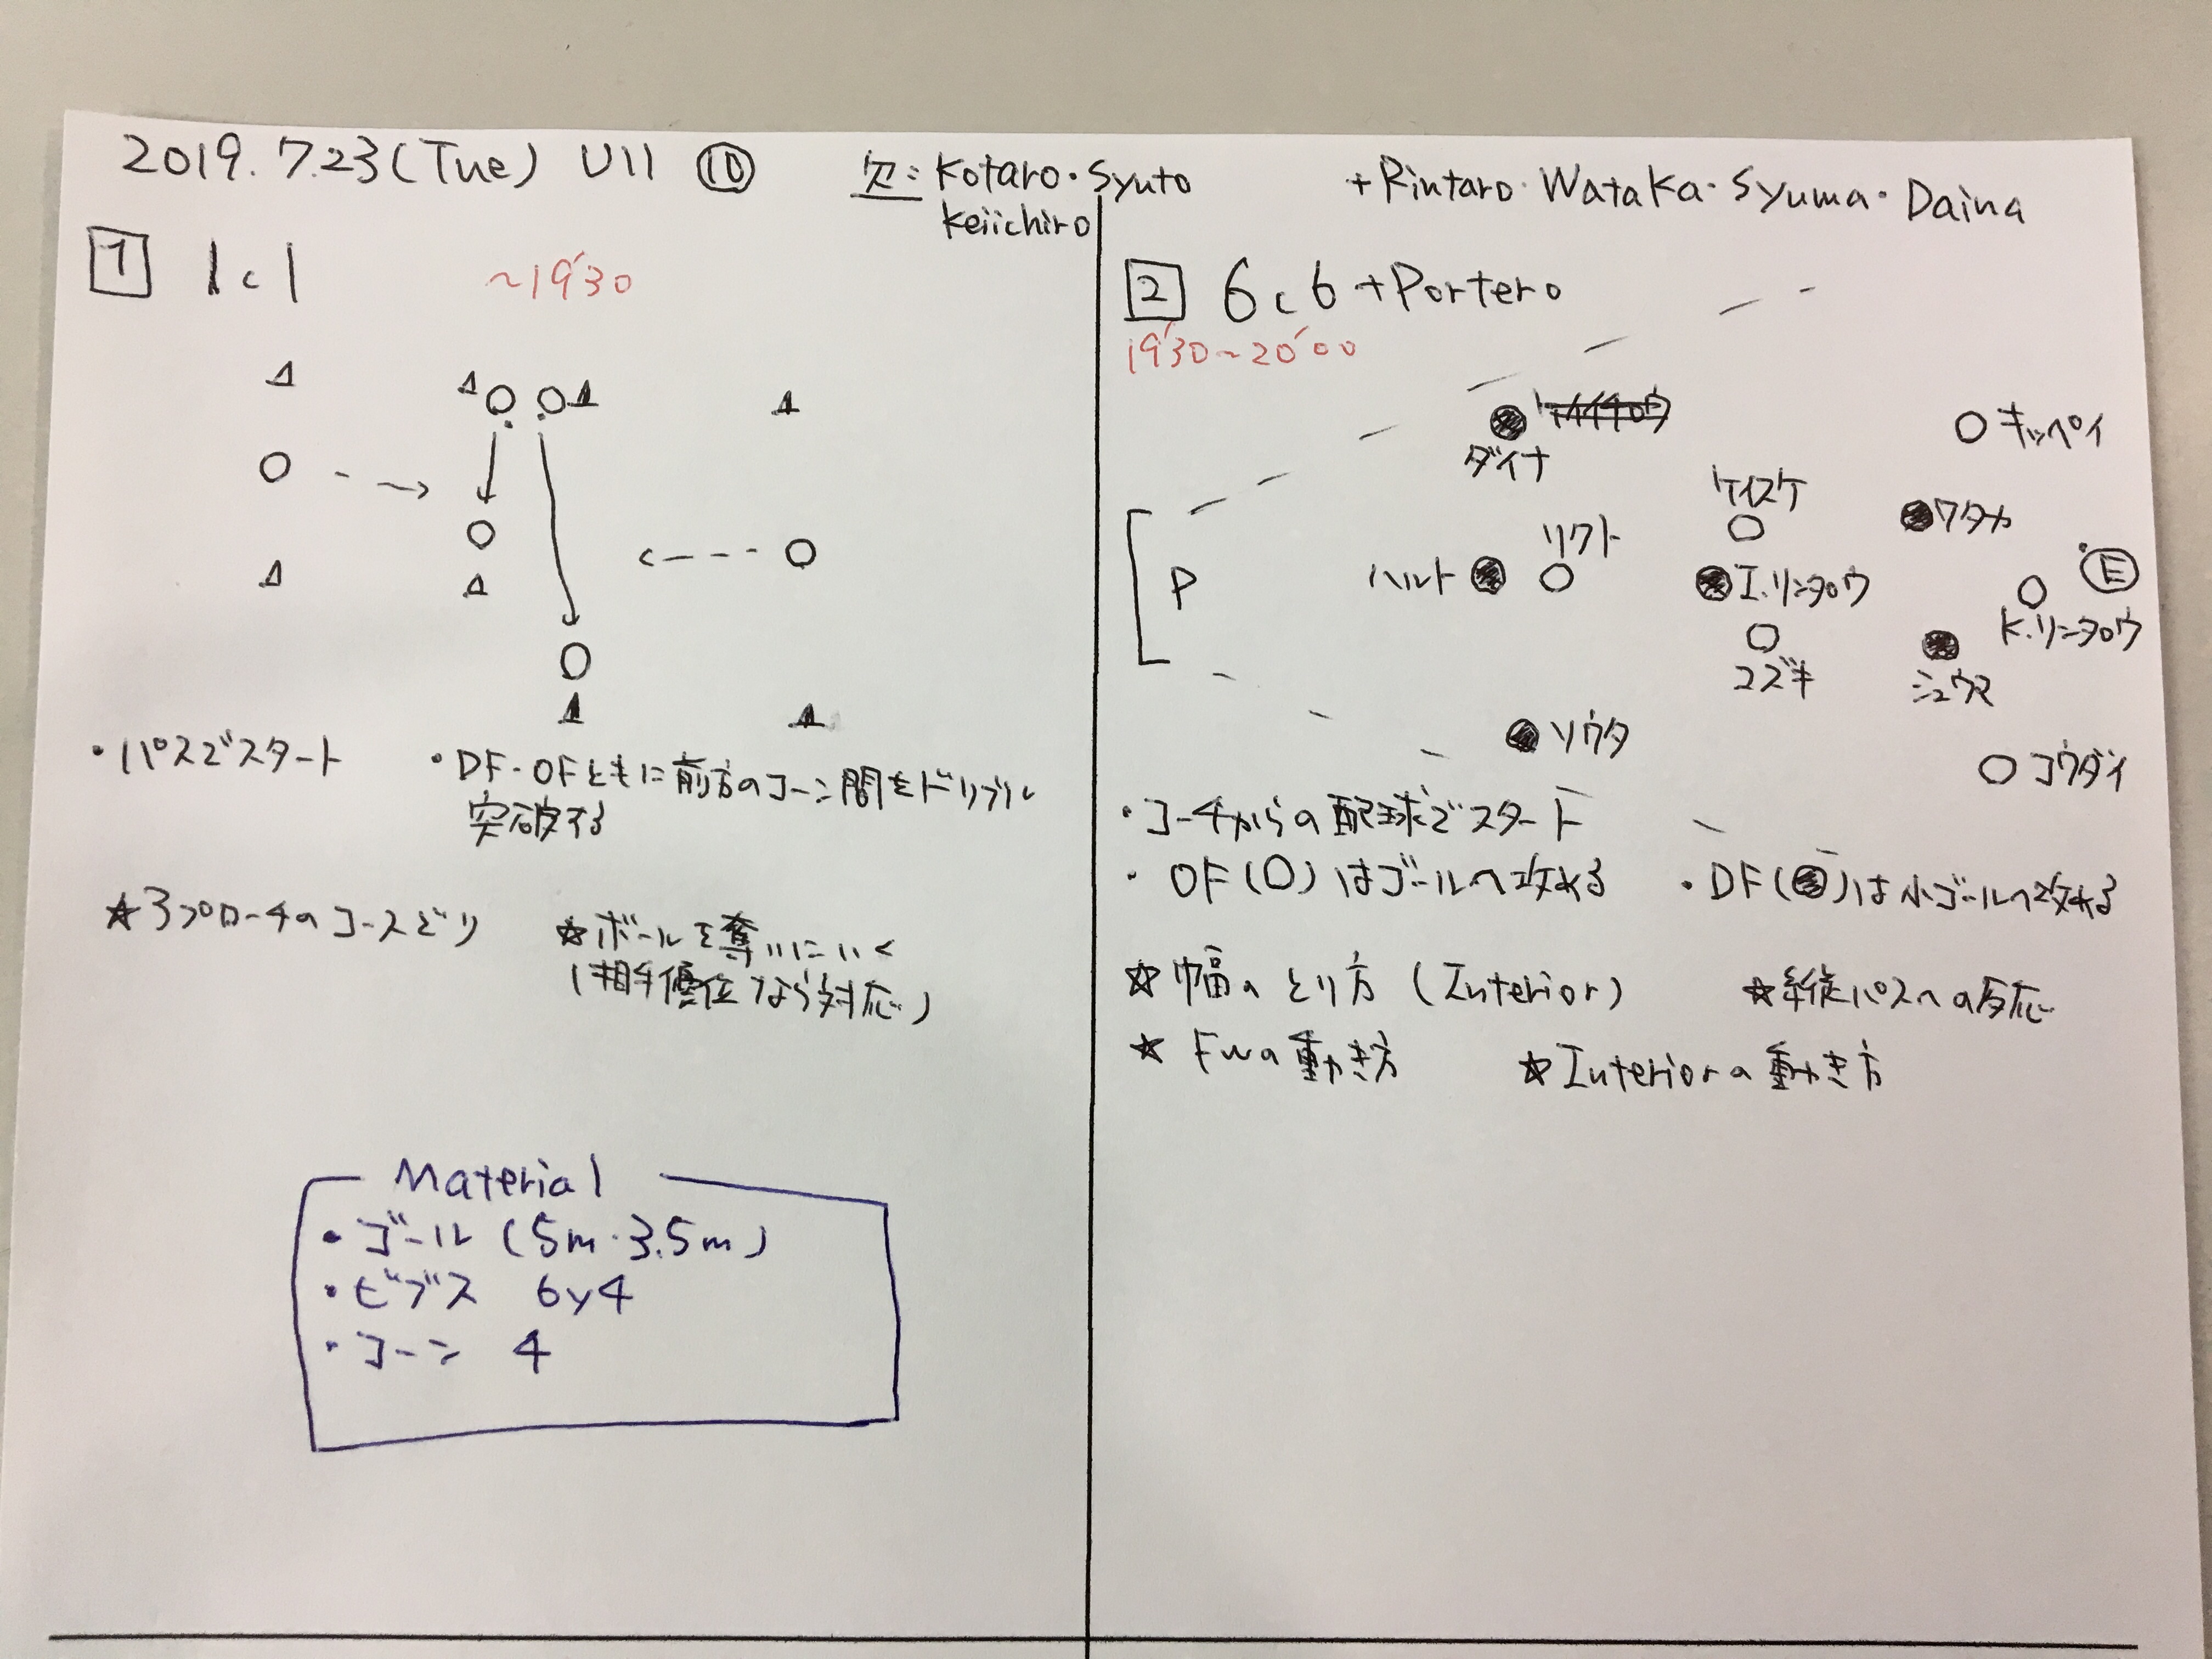 2019.7.23(Tue) U11 ⑩
欠:Kotaro・Syuto
Keiichiro
+Rintaro・Wataka・Syuma・Daina
1 1c1 ~19'30
・パスでスタート
・DF・OFともに前方のコーン間をドリブル
突破する
☆アプローチのコースどり
☆ボールを奪いにいく
(相手優位なら対応)
Material
・ゴール(5m・3.5m)
・ビブス 6y4
・コーン 4
2 6c6+Portero
19'30~20'00
ケイイチロウ
ダイナ
キッペイ
ケイスケ
ワタカ
リクト
ハルト
P
I.リンタロウ
E
K.リンタロウ
コズキ
シュウマ
ソウタ
コウダイ
・コーチからの配球でスタート
・OF(○)はゴールへ攻める
・DF(●)は小ゴールへ攻める
☆幅のとり方(Interior)
☆縦パスへの反応
☆FWの動き方
☆Interiorの動き方